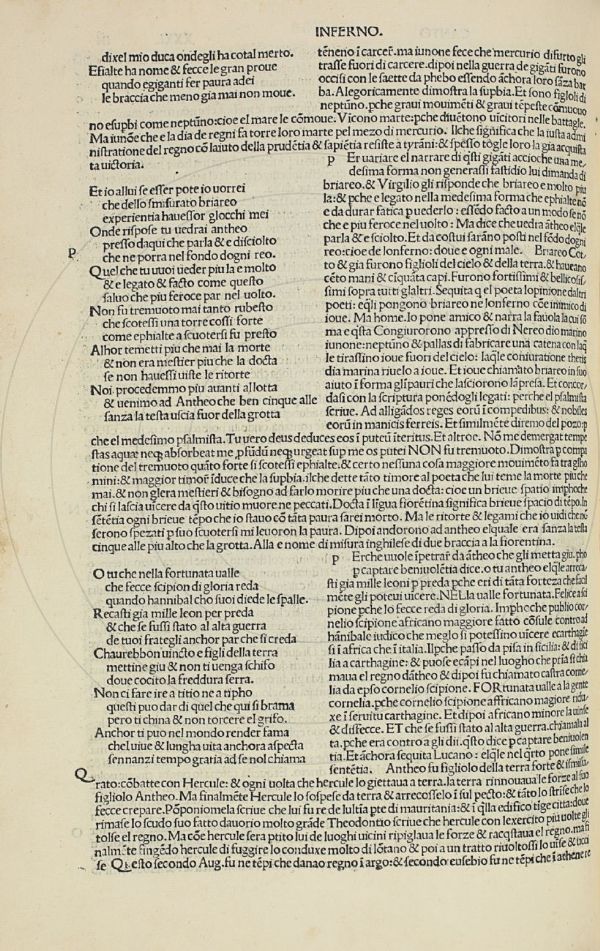 INFERNO.
dixel mio duca ondegli ha cotal merto.
Efialte ha nome & fecce le gran proue
quando egiganti fer paura adei
le braccia che meno gia mai non moue.
tēneno ī carceř. ma iunone fece che mercurio di furto gli
trasse fuori di carcere. di poi nella guerra de gigāti furono
occisi con le saette da phebo essendo āchora loro sāza bar
ba. Alegoricamente dimostra la suṗbia. Et sono figloli di
neptūno. ṗche graui mouimēti & graui tēpeste cōmuouo
no esuṗbi come neptūno: cioe el mare le cōmoue. Vicono marte: ṗche diuētono uicitori nelle battagle.
Ma iunōe che e la dia de regni fa torre loro marte pel mezo di mercurio. Ilche significa che la iusta admi
nistratione del regno cō laiuto della prudētia & sapiētia resiste a tyrāni: & spesso togle loro la gia acquista
ta uictoria.
Et io allui se esser pote io uorrei
che dello smisurato briareo
experientia hauessor glocchi mei
Onde rispose tu uedrai antheo
presso da qui che parla & e disciolto
che ne porra nel fondo dogni reo.
Quel che tu uuoi ueder piu la e molto
& e legato & facto come questo
saluo che piu feroce par nel uolto.
Non fu tremuoto mai tanto rubesto
che scotessi una torre cosi forte
come ephialte a scuotersi fu presto
Alhor temetti piu che mai la morte
& non era mestier piu che la docta
se non hauessi uiste le ritorte
Noi procedemmo piu auanti allotta
& uenimo ad Antheo che ben cinque alle
sanza la testa uscia fuor della grotta
p
P Er uariare el narrare di q̄sti giganti accioche una me
desima forma non generassi fastidio lui dimanda di
briareo. & Virgilio gli risponde che briareo e molto piu
la: & ṗche e legato nella medesima forma che ephialte nō
e da durar fatica ṗ uederlo: essēdo facto a un modo se nō
che e piu feroce nel uolto: Ma dice che uedra ātheo elq̄le
parla & e sciolto. Et da costui sarāno posti nel fōdo dogni
reo: cioe de lonferno: doue e ogni male. Briareo Cot
to & gia furono figlioli del cielo & della terra. & haueano
cēto mani & cīquāta capi. Furono fortissimi & bellicosis
simi sopra tutti glaltri. Sequita q̄ el poeta lopinione daltri
poeti: eq̄li pongono briareo ne lonferno cōe inimico di
ioue. Ma home. lo pone amico & narra la fauola la cui sō
ma e q̄sta Congiurorono appresso di Nereo dio marino
iunone: neptūno & pallas di fabricare una catena con laq̄
le tirassino ioue fuori del cielo: laq̄le coniuratione thetis
dia marina riuelo a ioue. Et ioue chiamato briareo in suo
aiuto ī forma gli pauri che lasciorono lāp̄sa. Et concor
dasi con la scriptura ponēdogli legati: perche el psalmista
scriue. Ad alligādos reges eorū ī compedibus: & nobiles
eorū in manicis ferreis. Et similmēte diremo del pozo: ṗ
che el medesimo psalmista. Tu uero deus deduces eos ī puteū īteritus. Et altroe. Nō me demergat tempe
stas aquæ neq; absorbeat me ṗfūdū neq; urgeat suṗ me os putei NON fu tremuoto. Dimostra ṗ compa
tione del tremuoto quāto forte si scotessi ephialte. & certo nessuna cosa maggiore mouimēto fa tra glhō
mini: & maggior timoř īduce che la suṗbia. ilche dette tāto timore al poeta che lui teme la morte piu che
mai. & non glera mestieri & bisogno ad farlo morire piu che una docta: cioe un brieue spatio imṗhoche
chi si lascia uicere da q̄sto uitio muore ne peccati. Docta ī līgua fiorētina significa brieue spacio di tēpo. In
sētētia ogni brieue tēpo che io stauo cō tāta paura sarei morto. Ma le ritorte & legami che io uidi che nō
serono spezati ṗ suo scuotersi mi leuoron la paura. Dipoi andorono ad antheo elquale era sanza la testa
cinque alle piu alto che la grotta. Alla e nome di misura inghilese di due braccia a la fiorentina.
O tu che nella fortunata ualle
che fecce scipion di gloria reda
quando hannibal cho suoi diede le spalle.
Recasti gia mille leon per preda
& che se fussi stato al alta guerra
de tuoi frategli anchor par che si creda
Chaurebbon uincto e figli della terra
mettine giu & non ti uenga schifo
doue cocito la freddura serra.
Non ci fare ire a titio ne a tipho
questi puo dar di quel che qui si brama
pero ti china & non torcere el grifo.
Anchor ti puo nel mondo render fama
chel uiue & lungha uita anchora aspecta
se nnanzi tempo gratia ad se nol chiama
p Erche uuole īpetrař da ātheo che gli metta giu. ṗho
ṗ captare beniuolētia dice. o tu antheo elq̄le arreca
sti gia mille leoni ṗ preda ṗche eri di tāta forteza che facil
mēte gli poteui uicere. NELla ualle fortunata. Felice a sci
pione ṗche lo fecce reda di gloria. Imṗhoche publio cor
nelio scipione africano maggiore fatto cōsule contro ad
hānibale iudico che meglo si potessino uīcere ecarthagie
si ī africa che ī italia. Ilche passo da pisa in sicilia: & di sici
lia a carthagine: & puose ecāpi nel luogho che p̄ia si chia
maua el regno dātheo & dipoi fu chiamato castra corne
lia da epso cornelio scipione. FORtunata ualle a la gente
cornelia. ṗche cornelio scipione affricano magiore ridu
xe ī seruitu carthagine. Et dipoi africano minore la uinse
& disfecce. ET che se fussi stato al alta guerra. chiamala al
ta. ṗche era contro a gli dii. q̄sto dice ṗ captare beniuolen
tia. Et āchora sequita Lucano: elq̄le nel q̄rto pone simile
sentētia. Antheo fu figliolo della terra forte & ismisu
Q rato: cōbatte con Hercule: & ogni uolta che hercule lo giettaua a terra. la terra rinnouaua le forze al suo
figliolo Antheo. Ma finalmēte Hercule lo sospese da terra & arrecoselo ī sul pecto: & tāto lo strise che lo
fecce crepare. Pōponio mela scriue che lui fu re de lultīa ṗte di mauritania: & ī q̄lla edifico tige citta: doue
rimase lo scudo suo fatto dauorio molto grāde Theodontio scriue che hercule con lexercito piu uolte gli
tolse el regno. Ma cōe hercule sera ṗtito lui de luoghi uicini ripiglaua le forze & racq̄staua el regno. ma fi
nalmēte fingēdo hercule di fuggire lo conduxe molto di lōtano & poi a un tratto riuoltossi lo uise & ucci
se Questo secondo Aug. fu ne tēpi che danao regno ī argo: & secondo eusebio fu ne tēpi che ī athene re